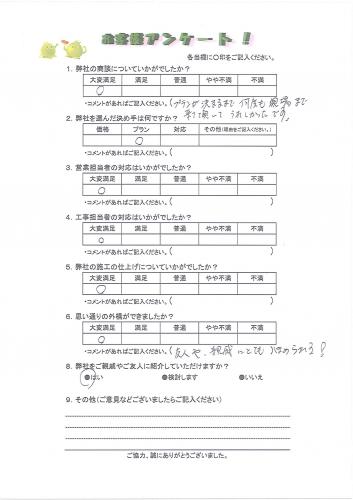 お客様アンケート!
各当欄に〇印をご記入ください。
1. 弊社の商談についていかがでしたか?
大変満足 満足 普通 やや不満 不満
〇
・コメントがあればご記入ください。(プランが決まるまで 何度も 現場まで
来て頂いて うれしかったです。)
2. 弊社を選んだ決め手は何ですか?
価格 プラン 対応 その他(理由をご記入ください。)
〇
・コメントがあればご記入ください。( )
3. 営業担当者の対応はいかがでしたか?
大変満足 満足 普通 やや不満 不満
〇
・コメントがあればご記入ください。( )
4. 工事担当者の対応はいかがでしたか?
大変満足 満足 普通 やや不満 不満
〇
・コメントがあればご記入ください。( )
5. 弊社の施工の仕上げについていかがでしたか?
大変満足 満足 普通 やや不満 不満
〇
・コメントがあればご記入ください。( )
6. 思い通りの外構ができましたか?
大変満足 満足 普通 やや不満 不満
〇
・コメントがあればご記入ください。(友人や、親戚にとても ほめられる!
8. 弊社をご親戚やご友人に紹介していただけますか?
●はい ●検討します ●いいえ
9. その他(ご意見などございましたらご記入ください)
ご協力、誠にありがとうございました。